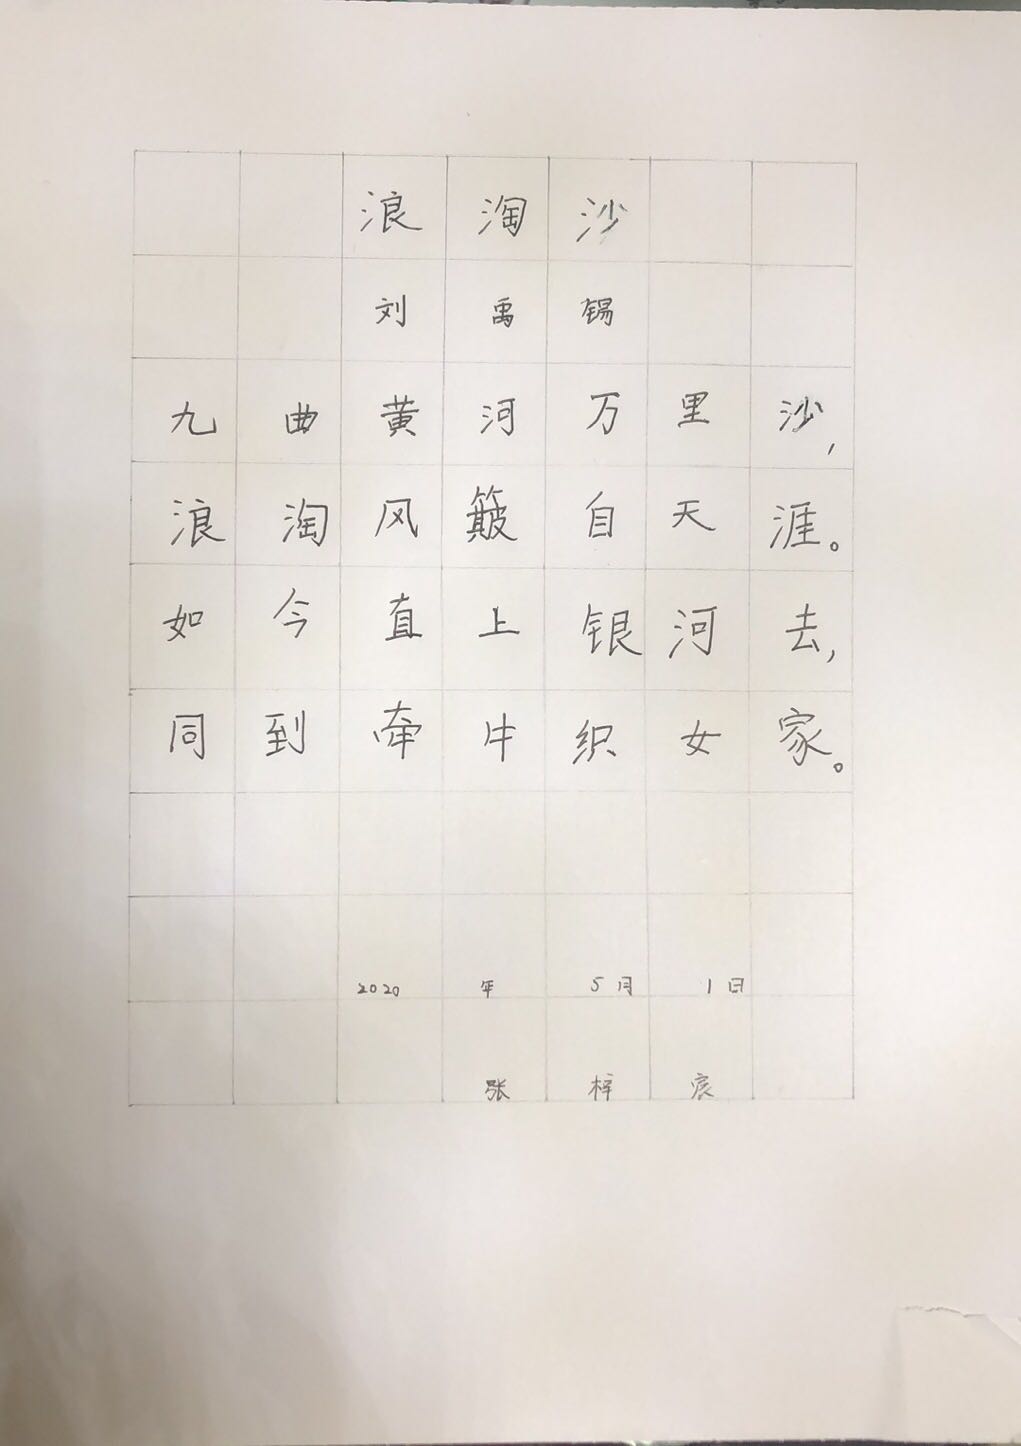 浪淘沙
刘禹锡
九曲黄河万里沙,
浪淘风簸自天涯。
如今直上银河去,
同到牵牛织女家。
2020年5月1日
张梓宸